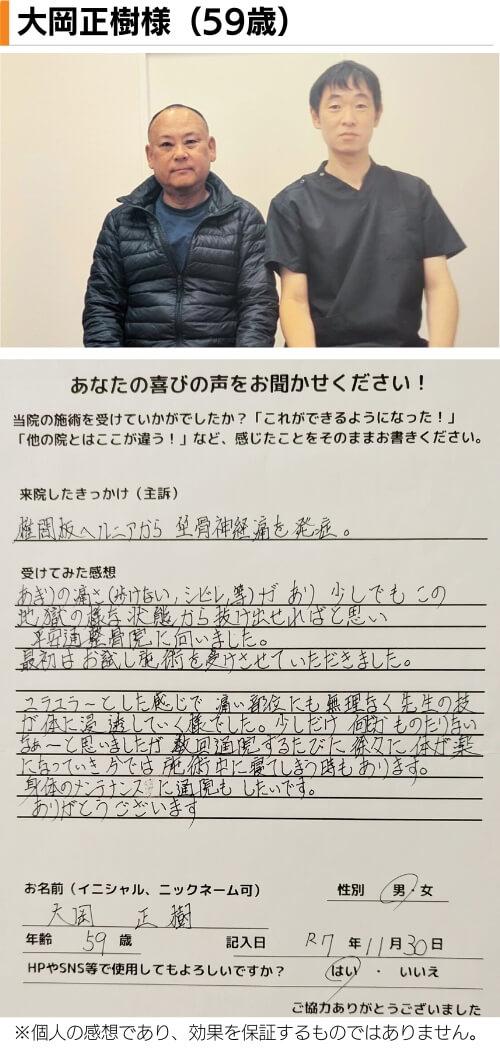 大岡正樹様（59歳）
あなたの喜びの声をお聞かせください！
当院の施術を受けていかがでしたか？「これができるようになった！」
「他の院とはここが違う！」など、感じたことをそのままお書きください。
来院したきっかけ（主訴）
椎間板ヘルニアから 坐骨神経痛を発症。
受けてみた感想
あまりの痛さ(歩けない,シビレ,等)があり 少しでも この
地獄の様な状態から抜け出せればと思い
平安通整骨院に向いました。
最初はお試し施術を受けさせていただきました。
ユラユラ～とした感じで 痛い部位にも無理なく先生の技
が体に浸透していく様でした。少しだけ 何かものたりない
なぁ～と思いましたが 数回通院するたびに 徐々に 体が楽
になっていき今では 施術中に寝てしまう時もあります。
身体のメンテナンスに通院も したいです。
ありがとうございます
お名前（イニシャル、ニックネーム可） 性別 男・女
大岡 正樹
年齢 59 歳 記入日 R7 年 11 月 30 日
HPやSNS等で使用してもよろしいですか？ はい ・ いいえ
ご協力ありがとうございました
※個人の感想であり、効果を保証するものではありません。